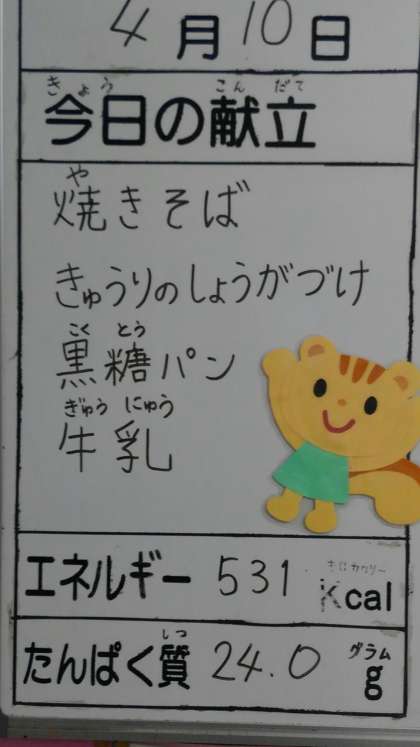 4月10日
きょう こんだて
今日の献立
や
焼きそば
きゅうりのしょうがづけ
こく とう
黒糖パン
ぎゅう にゅう
牛乳
キロカロリー
エネルギー 531 Kcal
しつ グラム
たんぱく質 24.0 g